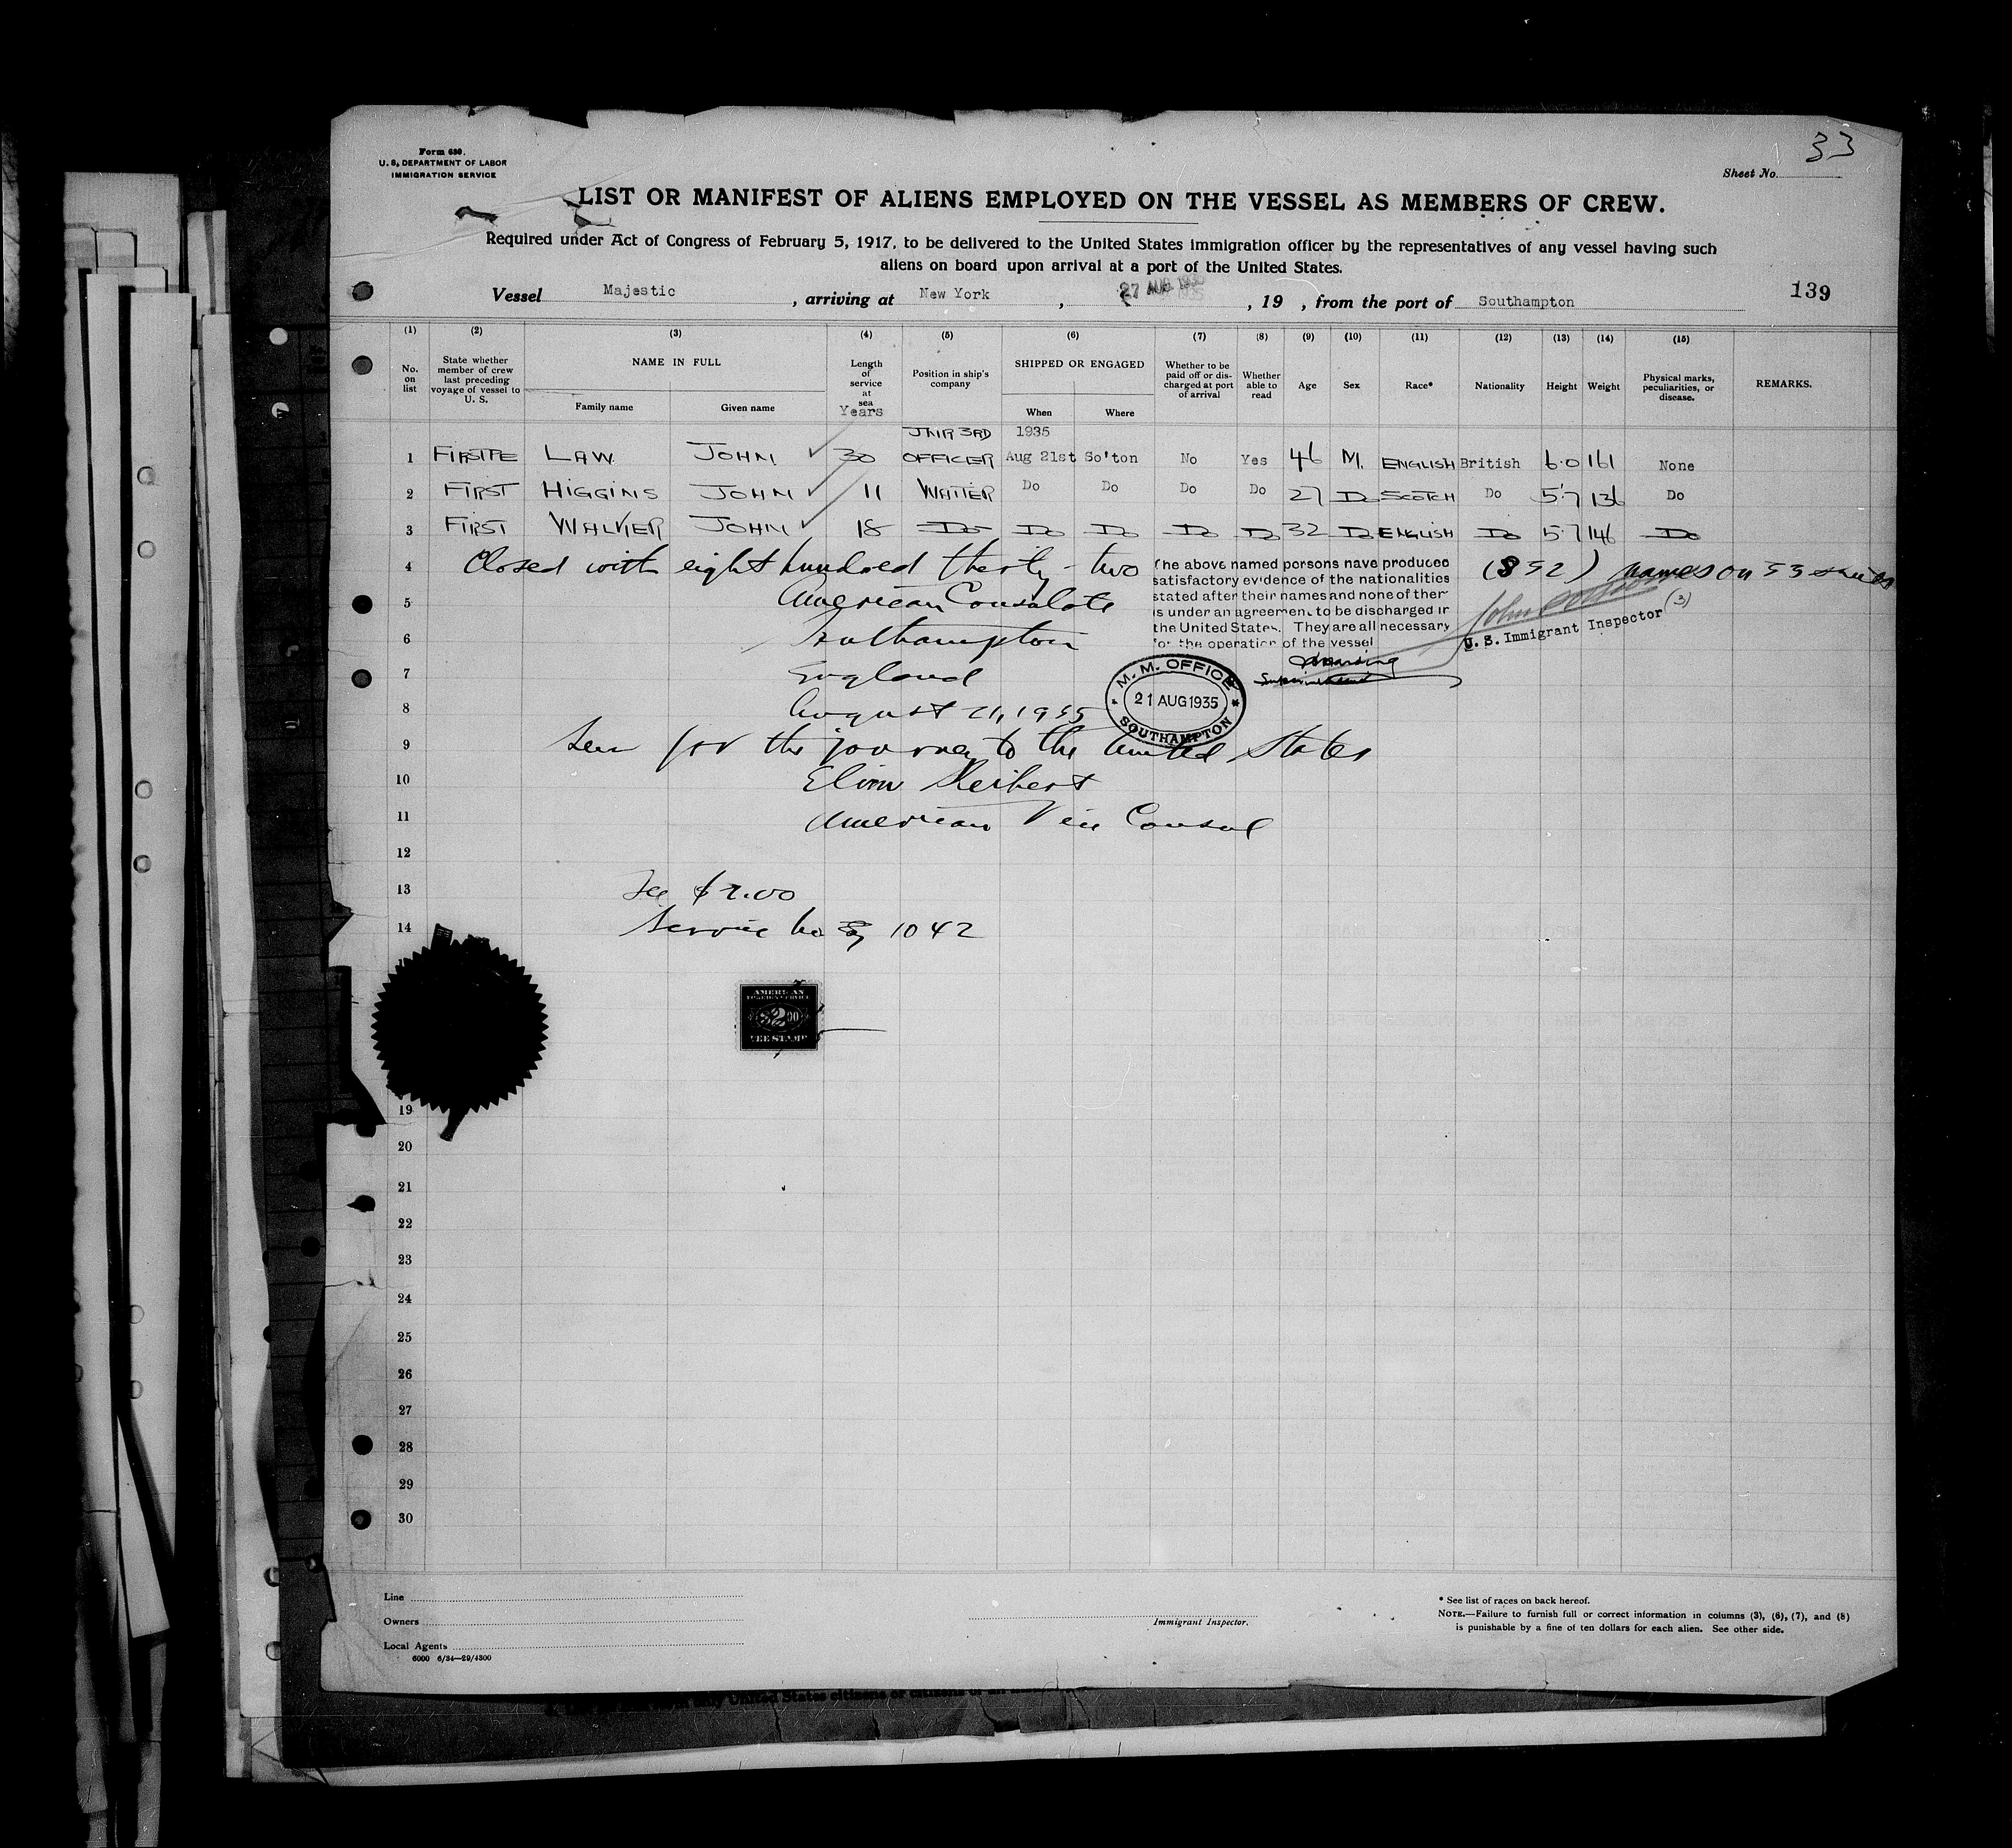 33
Form 680.
U. S. DEPARTMENT OF LABOR
IMMIGRATION SERVICE
Sheet No.
LIST OR MANIFEST OF ALIENS EMPLOYED ON THE VESSEL AS MEMBERS OF CREW.
Required under Act of Congress of February 5, 1917, to be delivered to the United States immigration officer by the representatives of any vessel having such
aliens on board upon arrival at a port of the United States.
Vessel Majestic , arriving at New York , 27 AUG 1935 , 19 , from the port of Southampton
139
(1) (2) (3) (4) (5) (6) (7) (8) (9) (10) (11) (12) (13) (14) (15)
No. on list
State whether member of crew last preceding voyage of vessel to U. S.
NAME IN FULL
Family name Given name
Length of service at sea
Years
Position in ship's company
SHIPPED OR ENGAGED
When Where
Whether to be paid off or discharged at port of arrival
Whether able to read
Age Sex Race* Nationality Height Weight
Physical marks, peculiarities, or disease.
REMARKS.
JNIR 3RD 1935
1 LAW JOHN 30 OFFICER Aug 21st So'ton No Yes 46 M. ENGLISH British 6.0 161 None
2 FIRST HIGGINS JOHN 11 WAITER Do Do Do Do 27 Do SCOTCH Do 5.7 136 Do
3 FIRST WALKER JOHN 18 Do Do Do Do Do 32 Do ENGLISH Do 5.7 146 Do
4 Closed with eight hundred thirty-two (832) names on 33 sheets
5 American Consulate
6 Southampton
7 England
8 August 21, 1935
9 Seen for the journey to the United States
10
11 American Vice Consul
The above named persons have produced
satisfactory evidence of the nationalities
stated after their names and none of them
is under an agreement to be discharged in
the United States. They are all necessary
for the operation of the vessel
Superintendent
U. S. Immigrant Inspector (3)
M. M. OFFICE
21 AUG 1935
SOUTHAMPTON
12
13 Fee $2.00
14 Service No 1042
AMERICAN
FOREIGN SERVICE
$2.00
FEE STAMP
19
20
21
22
23
24
25
26
27
28
29
30
Line
Owners
Local Agents
6000 6/34—29/4300
Immigrant Inspector.
* See list of races on back hereof.
NOTE.—Failure to furnish full or correct information in columns (3), (6), (7), and (8)
is punishable by a fine of ten dollars for each alien. See other side.